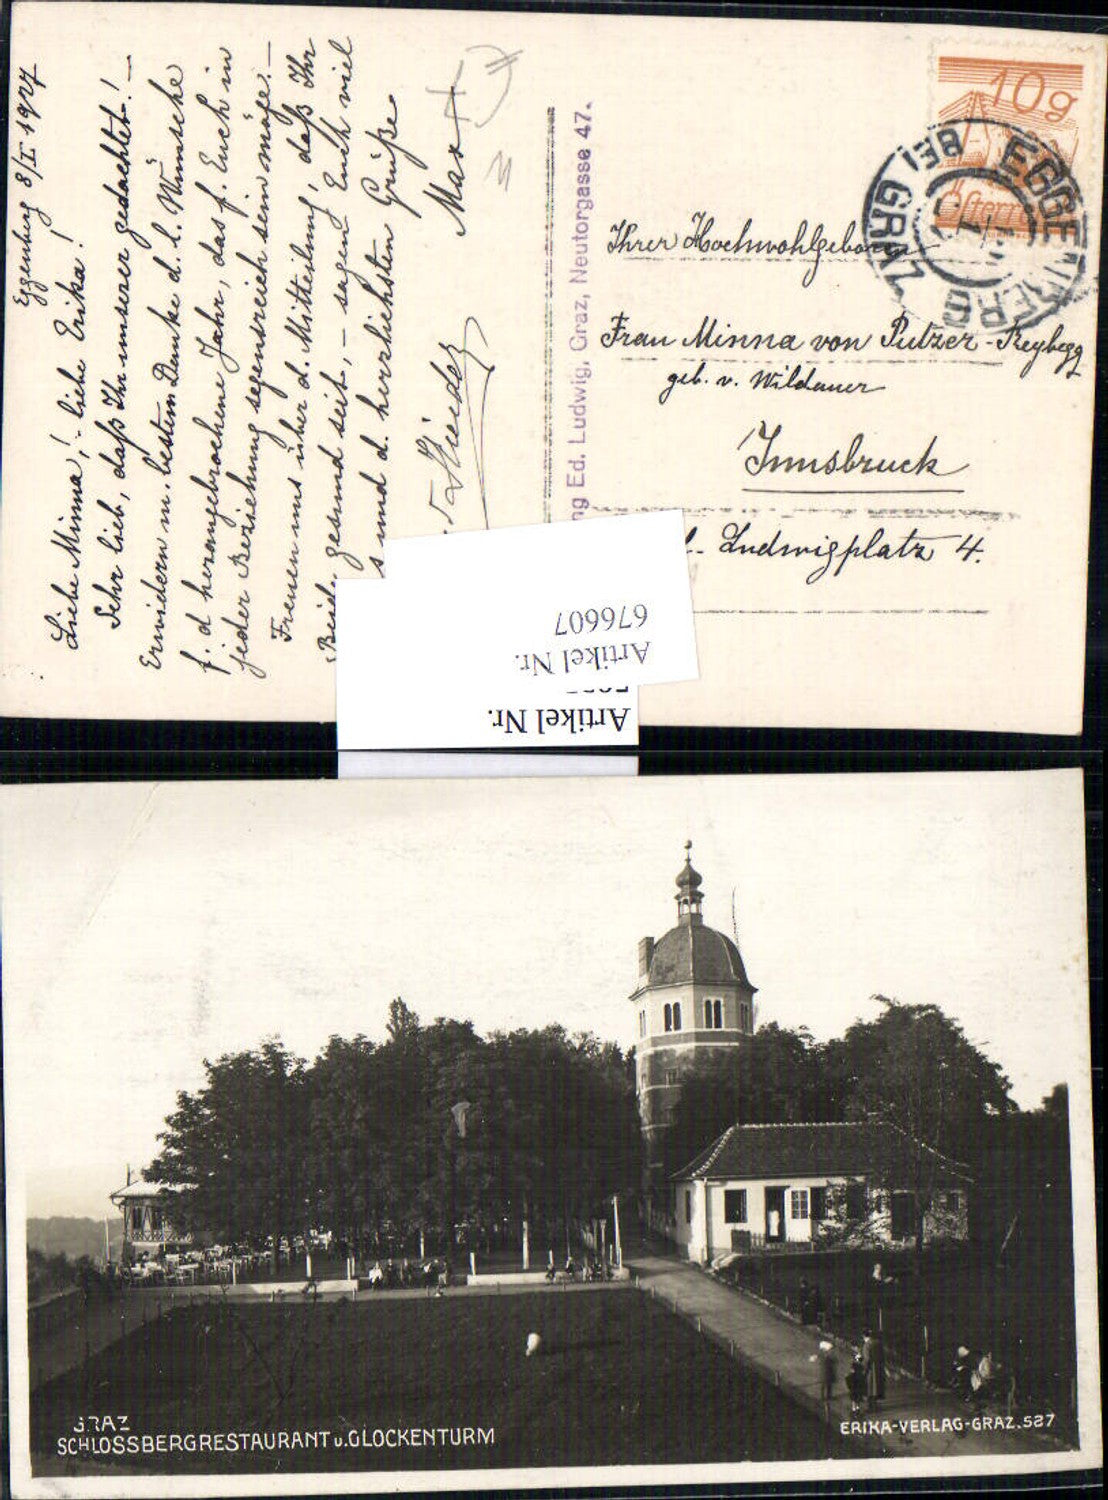 Eggenberg 8/I 1927
Liebe Minna! - liebe Erika!
Sehr lieb, daß Ihr unserer gedachtet! —
Erwidern m. bestem Danke d. l. Wünsche
f. d. herangebrochene Jahr, das f. Euch in
jeder Beziehung segensreich sein möge. —
Freuen uns über d. Mitteilung, daß Ihr
gesund seit, - sagen Euch viel
s und d. herzlichsten Grüße
Max
Ed. Ludwig, Graz, Neutorgasse 47.
10g
Österr
EGGENBERG BEI GRAZ
Ihrer Hochwohlgeboren
Frau Minna von Putzer-Reybegg
geb. v. Wildauer
Innsbruck
Ludwigplatz 4.
Artikel Nr.
676607
Artikel Nr.
GRAZ
SCHLOSSBERGRESTAURANT u. GLOCKENTURM
ERIKA-VERLAG-GRAZ.587